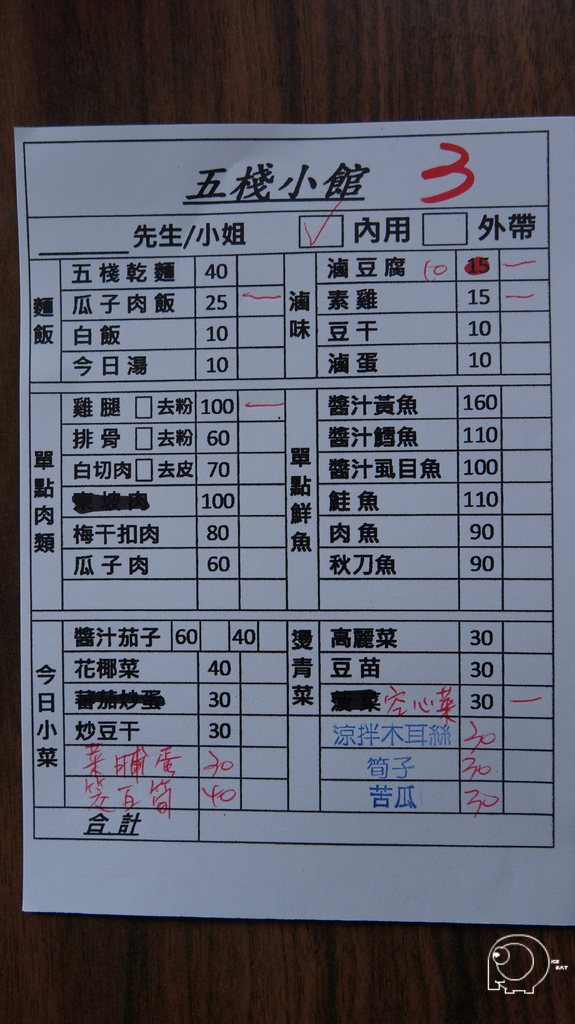 五棧小館 3
先生/小姐 ✓ 內用 □ 外帶
麵飯
五棧乾麵 40
瓜子肉飯 25 一
白飯 10
今日湯 10
滷味
滷豆腐 10 15 一
素雞 15 一
豆干 10
滷蛋 10
單點肉類
雞腿 □ 去粉 100 一
排骨 □ 去粉 60
白切肉 □ 去皮 70
東坡肉 100
梅干扣肉 80
瓜子肉 60
單點鮮魚
醬汁黃魚 160
醬汁鱈魚 110
醬汁虱目魚 100
鮭魚 110
肉魚 90
秋刀魚 90
今日小菜
醬汁茄子 60 40
花椰菜 40
蕃茄炒蛋 30
炒豆干 30
菜脯蛋 30
筊白筍 40
燙青菜
高麗菜 30
豆苗 30
空心菜 30 一
涼拌木耳絲 30
筍子 30
苦瓜 30
合計
ICE EAT